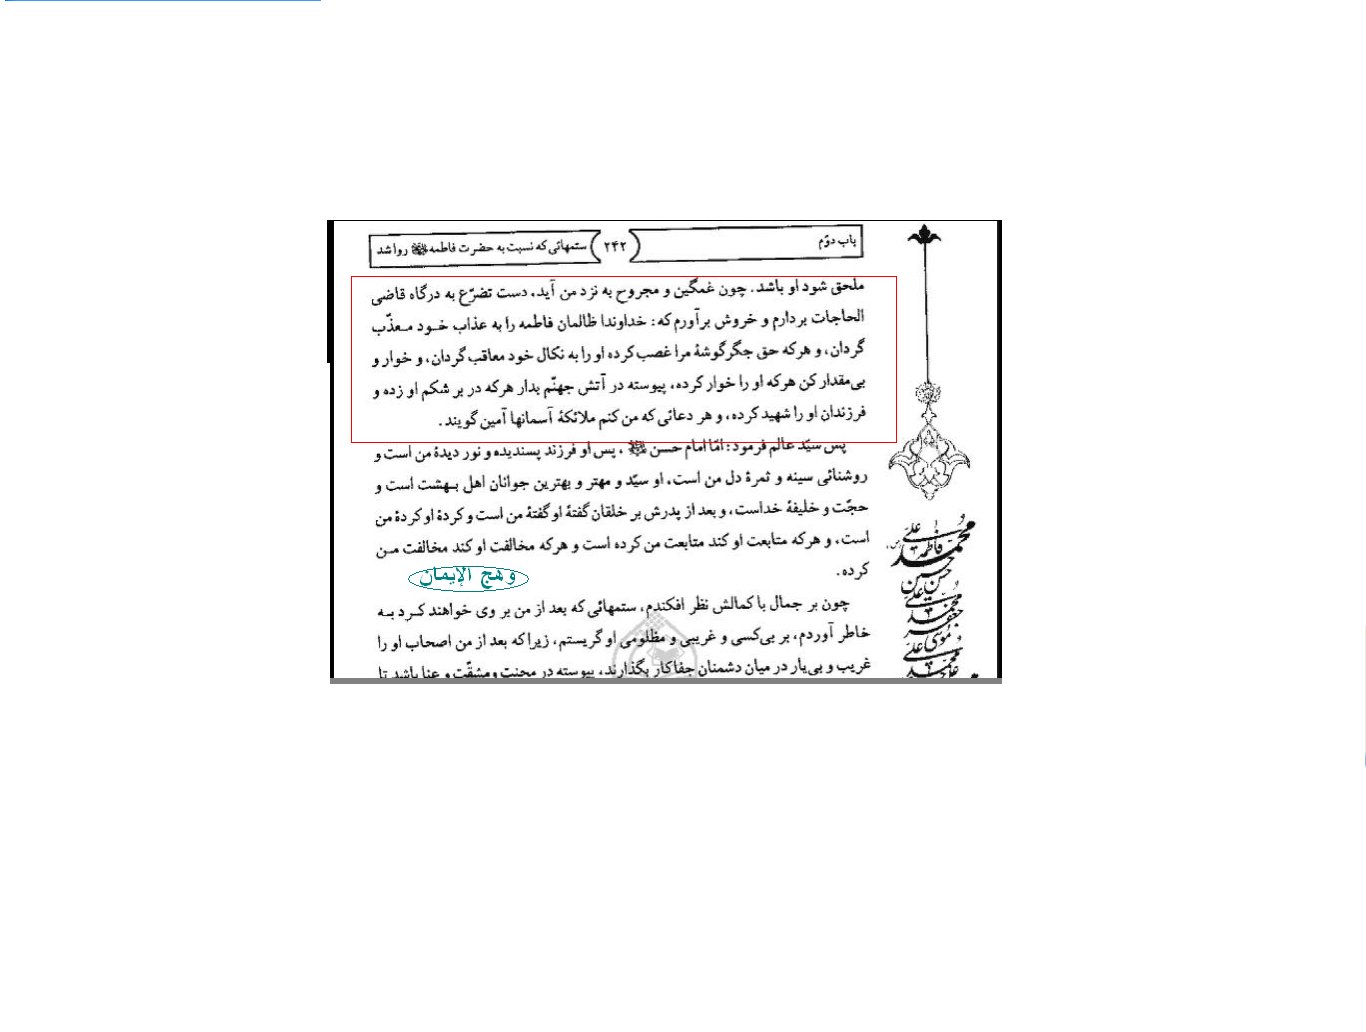 باب دوّم
۲۴۲
ستمهائی که نسبت به حضرت فاطمه روا شد
ملحق شود او باشد. چون غمگین و مجروح به نزد من آید، دست تضرّع به درگاه قاضی
الحاجات بردارم و خروش برآورم که: خداوندا ظالمان فاطمه را به عذاب خود معذّب
گردان، و هرکه حق جگرگوشهٔ مرا غصب کرده او را به نکال خود معاقب گردان، و خوار و
بی‌مقدار کن هرکه او را خوار کرده، پیوسته در آتش جهنّم بدار هرکه در بر شکم او زده و
فرزندان او را شهید کرده، و هر دعائی که من کنم ملائکهٔ آسمانها آمین گویند.
پس سیّد عالم فرمود: امّا امام حسن ، پس او فرزند پسندیده و نور دیدهٔ من است و
روشنائی سینه و ثمرهٔ دل من است، او سیّد و مهتر و بهترین جوانان اهل بهشت است و
حجّت و خلیفهٔ خداست، و بعد از پدرش بر خلقان گفتهٔ او گفتهٔ من است و کردهٔ او کردهٔ من
است، و هرکه متابعت او کند متابعت من کرده است و هرکه مخالفت او کند مخالفت من
کرده.
وهج الإیمان
چون بر جمال با کمالش نظر افکندم، ستمهائی که بعد از من بر وی خواهند کرد به
خاطر آوردم، بر بی‌کسی و غریبی و مظلومی او گریستم، زیرا که بعد از من اصحاب او را
غریب و بی‌یار در میان دشمنان جفاکار بگذارند، پیوسته در محنت و مشقّت و عنا باشد تا
علی
فاطمه
محمد
حسن
حسین
علی
محمد
جعفر
موسی
علی
محمد
علی